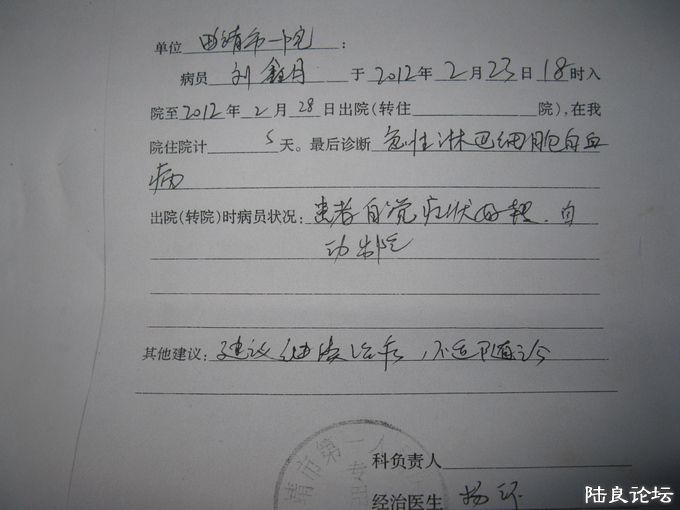 单位 曲靖市一院:
病员 刘鑫月 于2012年2月23日18时入
院至2012年2月28日出院(转住 院),在我
院住院计 5 天。最后诊断 急性淋巴细胞白血
病
出院(转院)时病员状况:患者自觉症状好转.自
动出院
其他建议:建议继续治疗,不适随诊
靖市第一人
专用
科负责人
经治医生 杨
陆良论坛